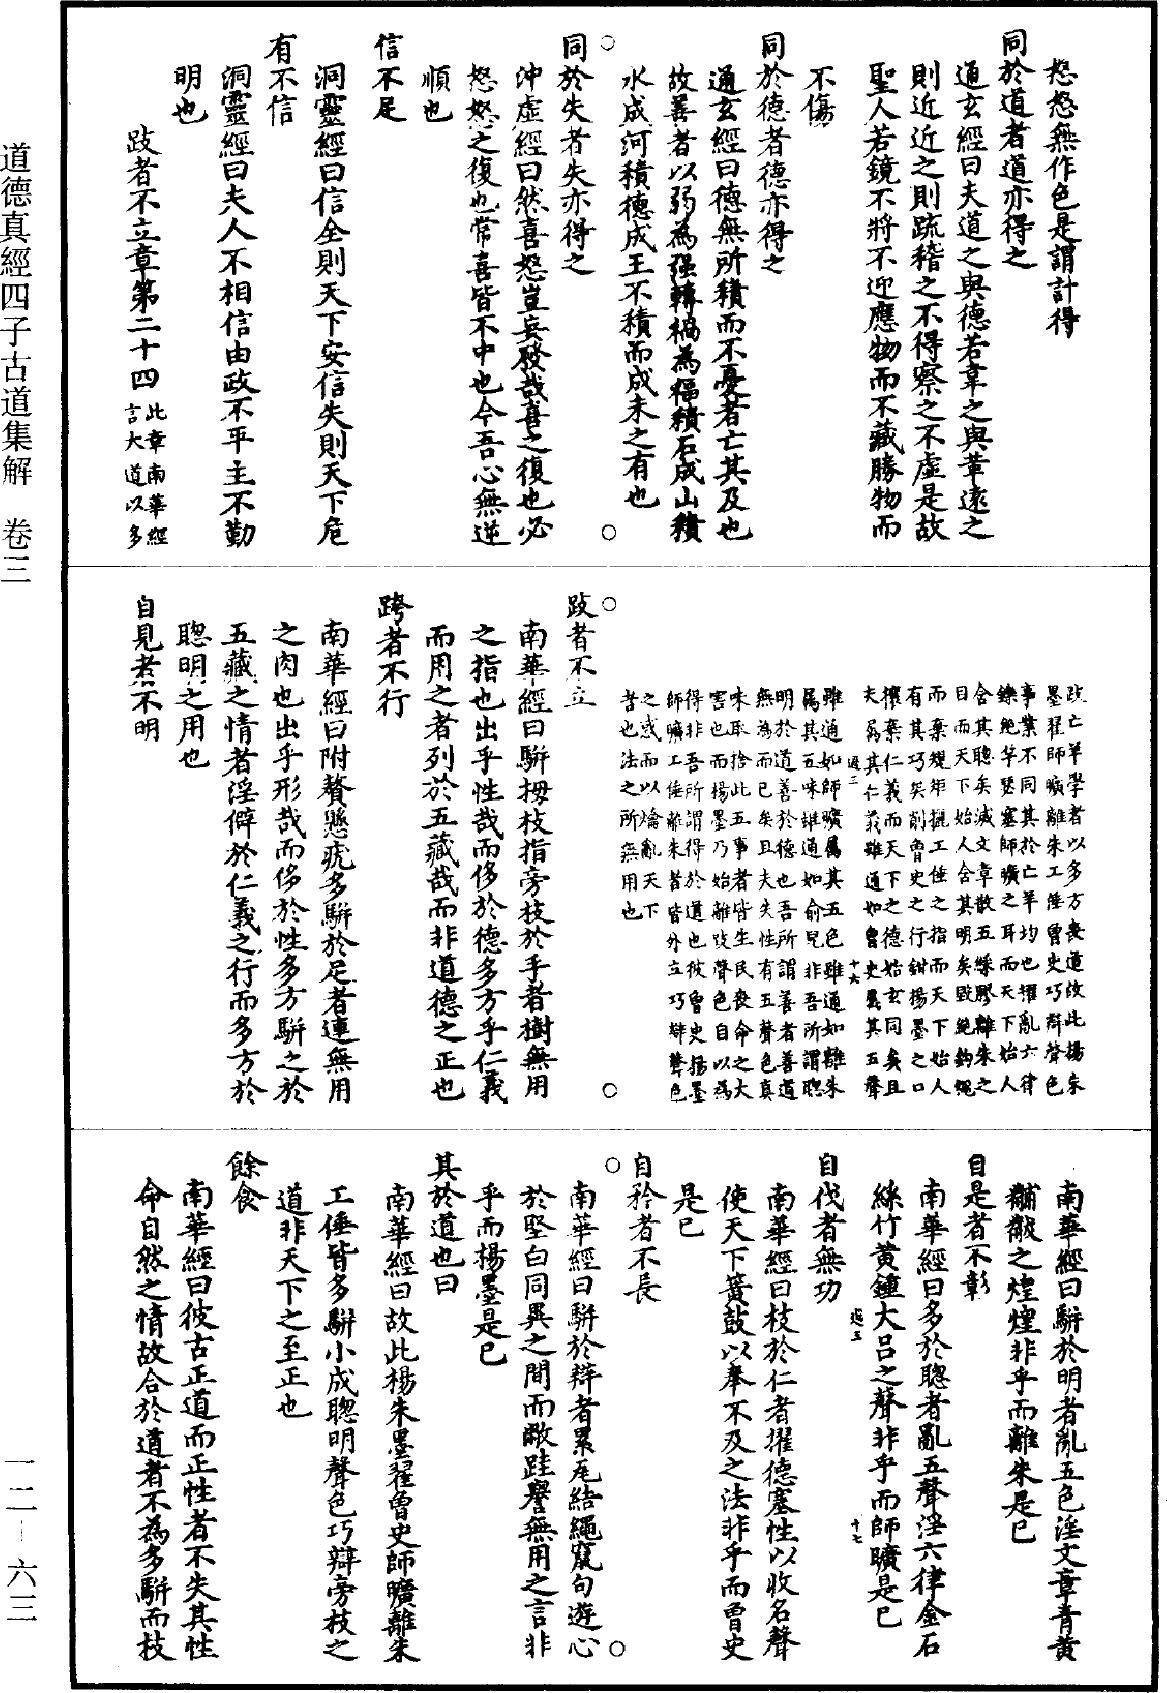 道德真經四子古道集解 卷三
一二—六三
怒怒無作色是謂計得
同於道者道亦得之
通玄經曰夫道之與德若韋之與革遠之
則近近之則疏稽之不得察之不虛是故
聖人若鏡不將不迎應物而不藏勝物而
不傷
同於德者德亦得之
通玄經曰德無所積而不憂者亡其及也
故善者以弱為强轉禍為福積石成山積
水成河積德成王不積而成未之有也
同於失者失亦得之
沖虛經曰然喜怒豈妄發哉喜之復也必
怒怒之復也常喜皆不中也今吾心無逆
順也
信不足
洞靈經曰信全則天下安信失則天下危
有不信
洞靈經曰夫人不相信由政不平主不勤
明也
跂者不立章第二十四 此章南華經
言大道以多
跂亡羊學者以多方喪道故此楊朱
墨翟師曠離朱工倕曾史巧辯聲色
事業不同其於亡羊均也擢亂六律
鑠絕竽瑟塞師曠之耳而天下始人
含其聰矣滅文章散五綵膠離朱之
目而天下始人含其明矣毀絕鉤繩
而棄規矩攦工倕之指而天下始人
有其巧矣削曾史之行鉗楊墨之口
攘棄仁義而天下之德始玄同矣且
夫屬其仁義雖通如曾史屬其五聲
過二 十六
雖通如師曠屬其五色雖通如離朱
屬其五味雖通如俞兒非吾所謂聰
明於道善於德也吾所謂善者善道
無為而已矣且夫失性有五聲色真
味取捨此五事者皆生民喪命之大
害也而楊墨乃始離跂聲色自以為
得非吾所謂得於道也彼曾史楊墨
師曠工倕離朱者皆外立巧辯聲色
之惑而以爚亂天下
者也法之所無用也
跂者不立
南華經曰駢拇枝指旁枝於手者樹無用
之指也出乎性哉而侈於德多方乎仁義
而用之者列於五藏哉而非道德之正也
跨者不行
南華經曰附贅懸疣多駢於足者連無用
之肉也出乎形哉而侈於性多方駢之於
五藏之情者淫僻於仁義之行而多方於
聰明之用也
自見者不明
南華經曰駢於明者亂五色淫文章青黃
黼黻之煌煌非乎而離朱是已
自是者不彰
南華經曰多於聰者亂五聲淫六律金石
絲竹黃鍾大呂之聲非乎而師曠是已
過三 十七
自伐者無功
南華經曰枝於仁者擢德塞性以收名聲
使天下簧鼓以奉不及之法非乎而曾史
是已
自矜者不長
南華經曰駢於辯者累瓦結繩竄句遊心
於堅白同異之間而敝跬譽無用之言非
乎而楊墨是已
其於道也曰
南華經曰故此楊朱墨翟曾史師曠離朱
工倕皆多駢小成聰明聲色巧辯旁枝之
道非天下之至正也
餘食
南華經曰彼古正道而正性者不失其性
命自然之情故合於道者不為多駢而枝